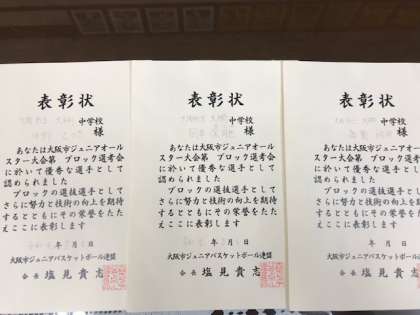 表彰状
中学校
様
あなたは大阪市ジュニアオール
スター大会第 ブロック選考会
に於いて優秀な選手として
認められました
ブロックの選抜選手として
さらに努力と技術の向上を期待
するとともにその栄誉をたた
えここに表彰します
年 月 日
大阪市ジュニアバスケットボール連盟
会長 塩見貴志
表彰状
中学校
様
あなたは大阪市ジュニアオール
スター大会第 ブロック選考会
に於いて優秀な選手として
認められました
ブロックの選抜選手として
さらに努力と技術の向上を期待
するとともにその栄誉をたた
えここに表彰します
年 月 日
大阪市ジュニアバスケットボール連盟
会長 塩見貴志
表彰状
中学校
様
あなたは大阪市ジュニアオール
スター大会第 ブロック選考会
に於いて優秀な選手として
認められました
ブロックの選抜選手として
さらに努力と技術の向上を期待
するとともにその栄誉をたた
えここに表彰します
年 月 日
大阪市ジュニアバスケットボール連盟
会長 塩見貴志